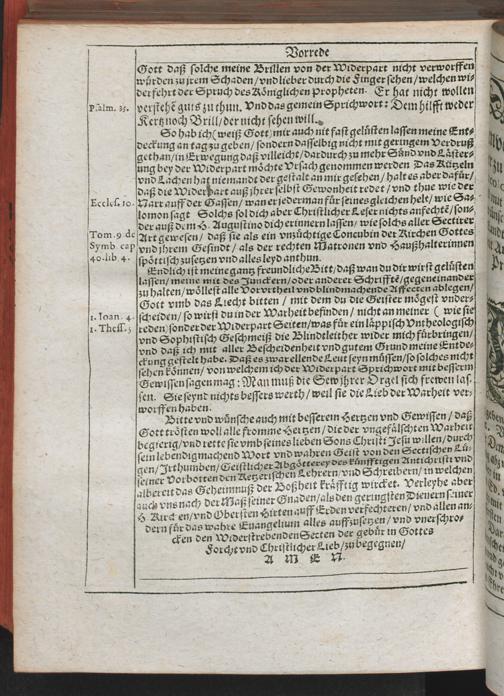 Vorrede
Gott daß solche meine Brillen von der Widerpart nicht verworffen
würden zu irem Schaden/ vnd lieber durch die Finger sehen/ welchen wi-
derfehrt der Spruch des Königlichen Propheten. Er hat nicht wollen
Psalm. 35.
verstehē guts zu thun. Vnd das gemein Sprichwort: Dem hilfft weder
Kertz noch Brill/ der nicht sehen will.
So hab ich/ weiß Gott/ mir auch nit fast gelüsten lassen meine Ent-
deckung an tag zu geben/ sondern dasselbig nicht mit geringem Verdruß
gethan/ in Erwegung daß villeicht/ dardurch zu mehr Sünd vnd Läster-
ung bey der Widerpart möchte Vrsach genommen werden Das Kützeln
vnd Lachen hat niemandt der gestalt an mir gesehen/ halt es aber dafür/
daß die Widerpart auß jhrer selbst Gewonheit redet/ vnd thue wie der
Eccles. 10.
Narr auff der Gassen/ wan er jederman für seines gleichen helt/ wie Sa-
lomon sagt Solchs sol dich aber Christlicher Leser nichts anfechtē/ son-
der auß dem H. Augustino dich erinnern lassen/ wie solchs aller Sectirer
Tom. 9 de
Symb. cap
40. lib. 4.
Art gewesen/ daß sie als ein vnzüchtige Concubin der Kirchen Gottes
vnd jhrem Gesindt/ als der rechten Matronen vnd Haußhalterinnen
spöttisch zusetzen vnd alles leyd anthun.
Endlich ist meine gantz freundliche Bitt/ daß wan du dir wirst gelüsten
lassen/ meine mit des Junckern/ oder anderer Schrifftē/ gegeneinander
zu halten/ wöllest alle Vorvrtheil vnd blindmachende Affecten ablegen/
Gott vmb das Liecht bitten/ mit dem du die Geister mögest vnder-
1. Ioan. 4.
1. Thess. 5
scheiden/ so wirst du in der Warheit befinden/ nicht an meiner (wie sie
reden) sonder der Widerpart Seiten/ was für ein läppisch Vntheologisch
vnd Sophistisch Geschmeiß die Blindtleiter wider mich fürbringen/
vnd daß ich mit aller Bescheidenheit vnd gutem Grund meine Entde-
ckung gestelt habe. Daß es zwar ellende Leut seyn müssen/ so solches nicht
sehen können/ von welchem ich der Widerpart Sprichwort mit besserm
Gewissen sagen mag: Man muß die Sew jhrer Orgel sich frewen las-
sen. Sie seynd nichts bessers werth/ weil sie die Lieb der Warheit ver-
worffen haben.
Bitte vnd wünsche auch mit besserem Hertzen vnd Gewissen/ daß
Gott trösten woll alle fromme Hertzen/ die der vngefälschten Warheit
begierig/ vnd rette sie vmb seines lieben Sons Christi Jesu willen/ durch
sein lebendigmachend Wort vnd wahren Geist von den Sectischen Lü-
gen/ Irthumben/ Geistlicher Abgötterey des künfftigen Antichrist vnd
seiner Vorbotten den Ketzerischen Lehrern/ vnd Schreibern/ in welchen
albereit das Geheimnuß der Boßheit kräfftig wircket. Verleyhe aber
auch vns nach der Maß seiner Gnaden/ als den geringsten Dienern seiner
H. Kirchen/ vnd Obersten Hirten auff Erden verfechteren/ vnd allen an-
dern für das wahre Euangelium alles auffzusetzen/ vnd vnerschros
cken den Widerstrebenden Secten der gebür in Gottes
Forcht vnd Christlicher Lieb/ zu begegnen/
A M E N.